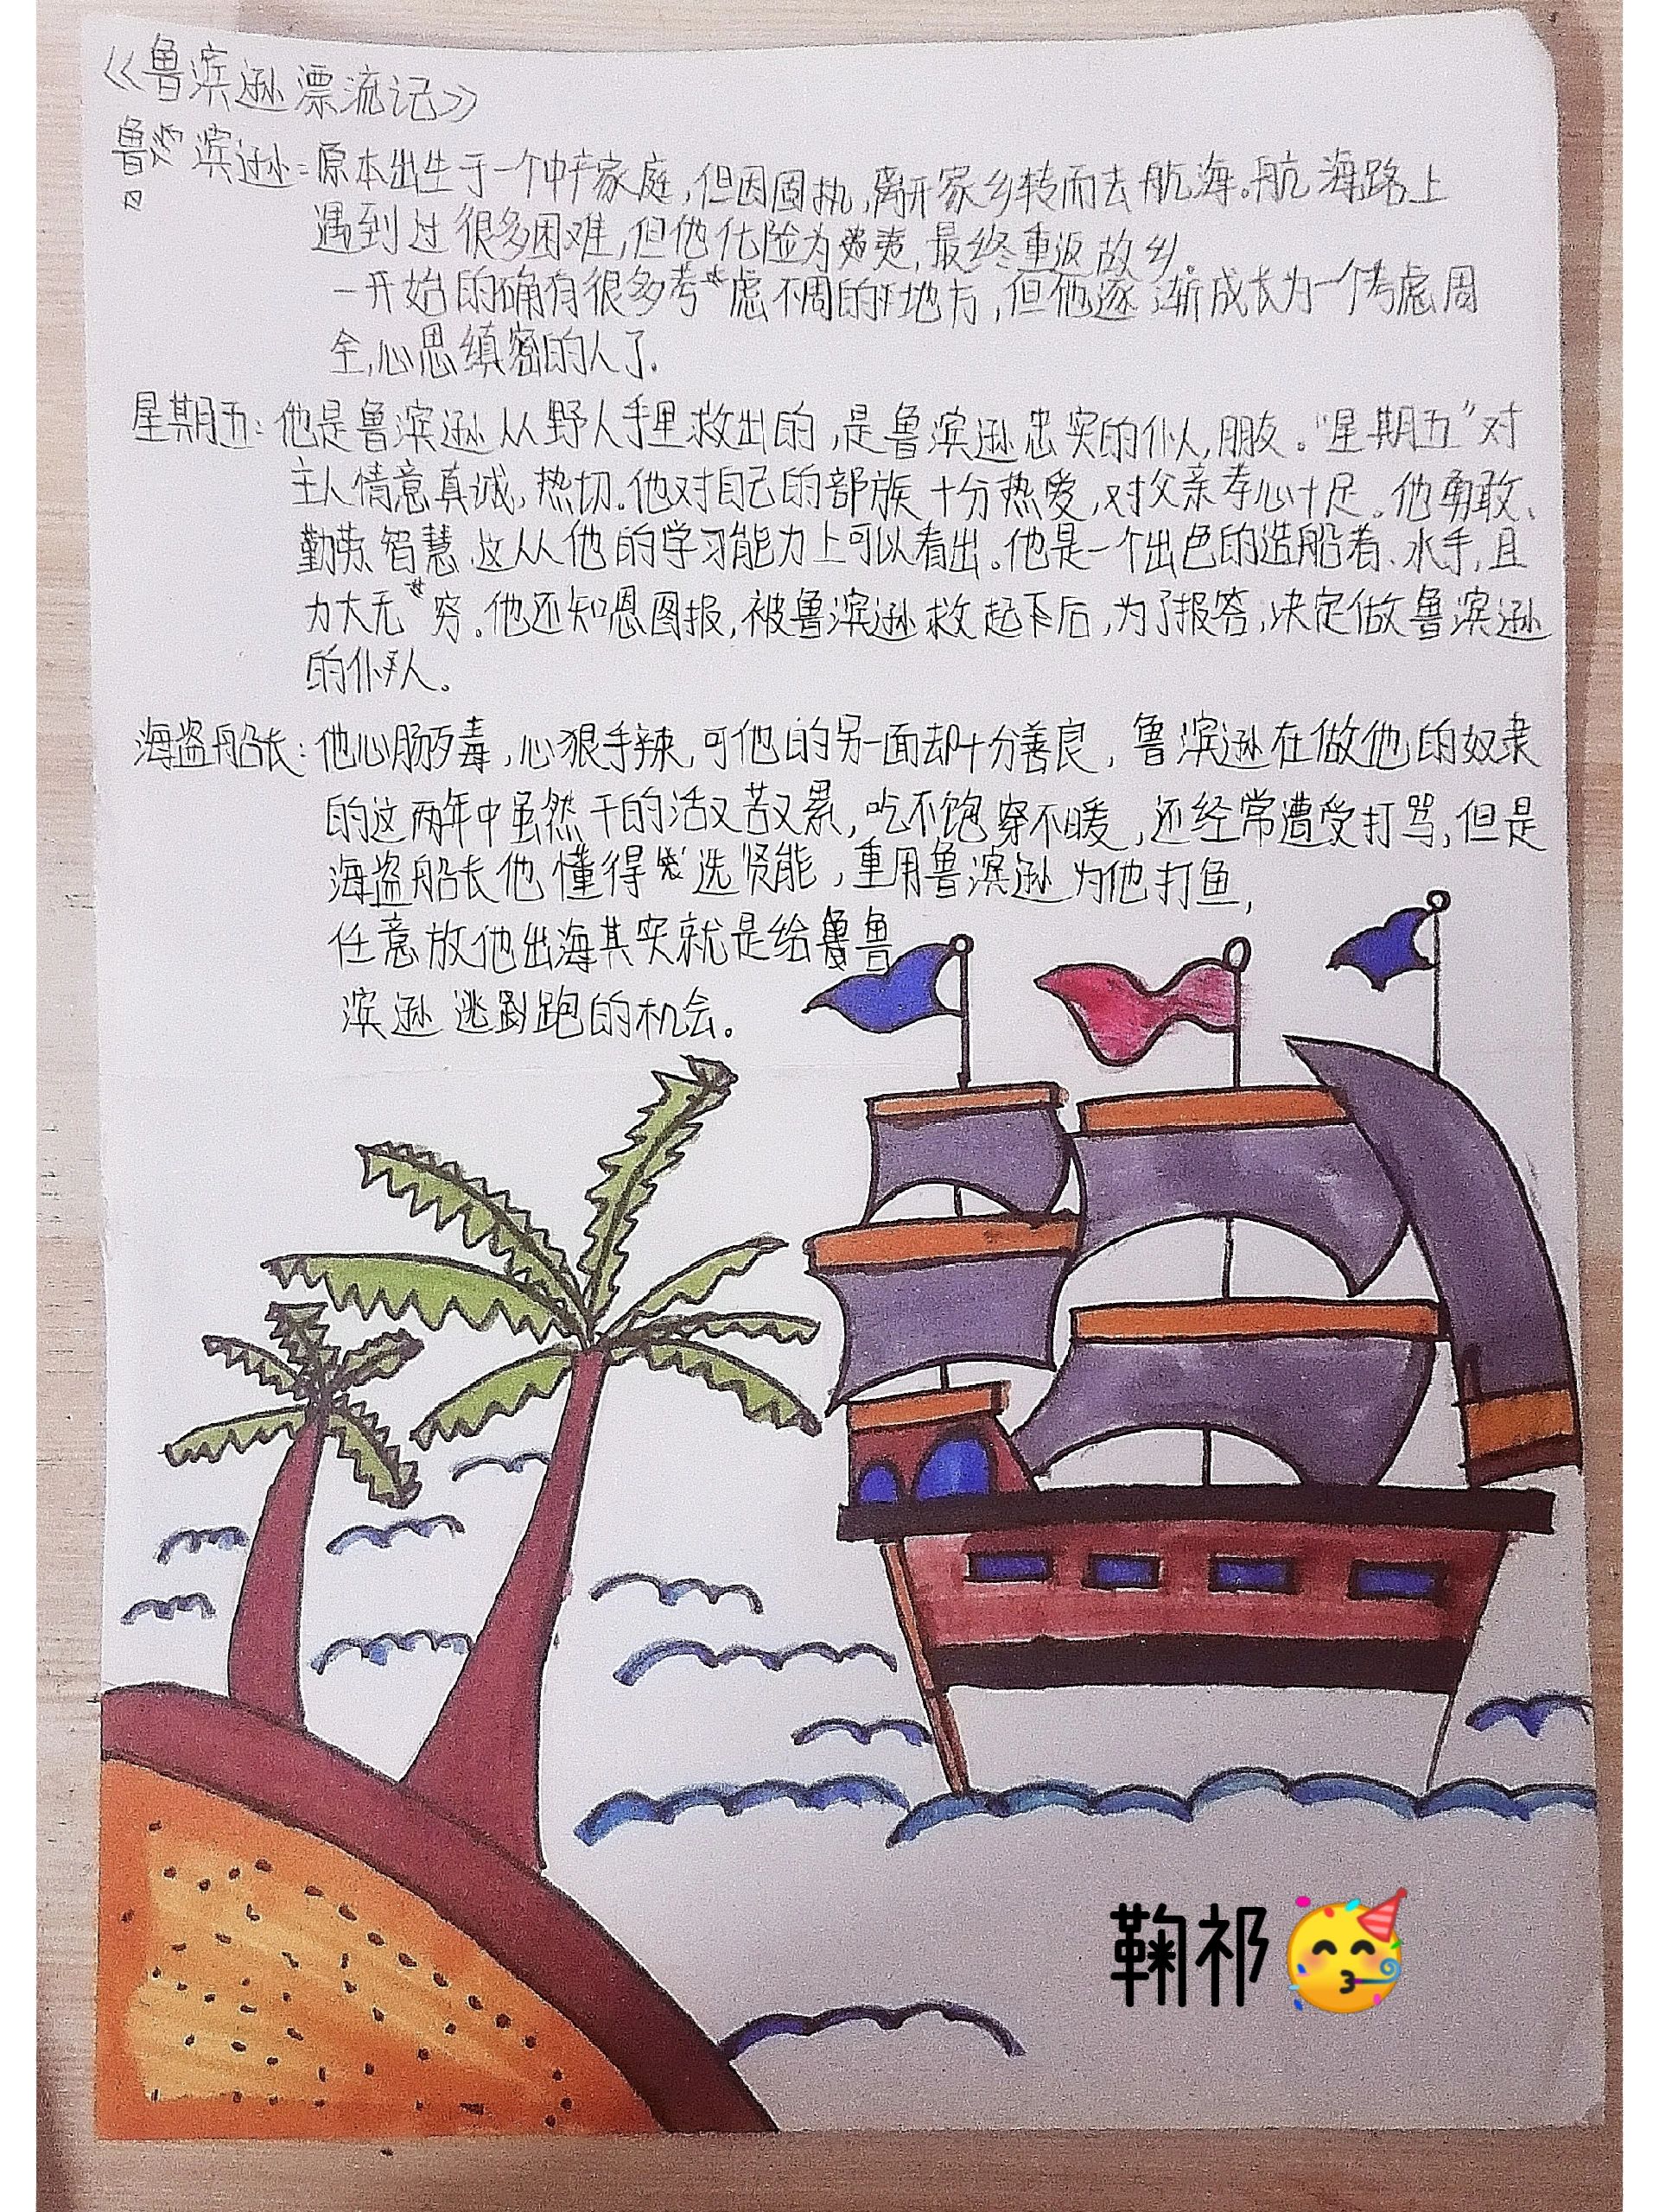 《鲁滨逊漂流记》
鲁滨逊:原本出生于一个中产家庭,但因固执,离开家乡转而去航海。航海路上
遇到过很多困难,但他化险为夷,最终重返故乡。
一开始的确有很多考虑不周的地方,但他逐渐成长为一个考虑周
全,心思缜密的人了。
星期五:他是鲁滨逊从野人手里救出的,是鲁滨逊忠实的仆人,朋友。“星期五”对
主人情意真诚,热切。他对自己的部族十分热爱,对父亲孝心十足。他勇敢、
勤劳、智慧、这从他的学习能力上可以看出。他是一个出色的造船者、水手,且
力大无穷。他还知恩图报,被鲁滨逊救起下后,为了报答,决定做鲁滨逊
的仆人。
海盗船长:他心肠歹毒,心狠手辣,可他的另一面却十分善良,鲁滨逊在做他的奴隶
的这两年中虽然干的活又苦又累,吃不饱穿不暖,还经常遭受打骂,但是
海盗船长他懂得选贤能,重用鲁滨逊为他打鱼,
任意放他出海其实就是给鲁
滨逊逃跑的机会。
鞠祁🥳